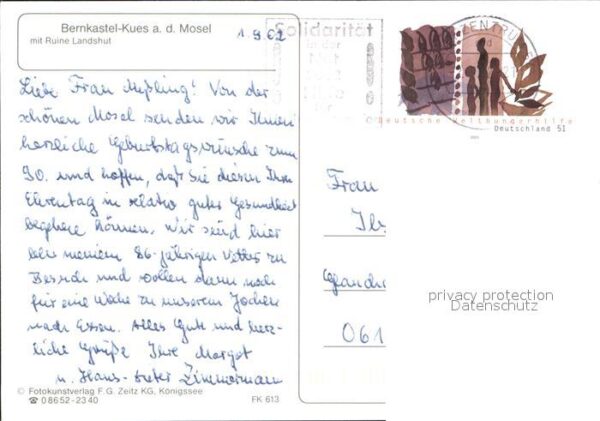 Bernkastel-Kues a. d. Mosel
mit Ruine Landshut
1.9.02
Liebe Frau Meßling! Von der
schönen Mosel senden wir Ihnen
herzliche Geburtstagswünsche zum
90. und hoffen, daß Sie diesen Ihren
Ehrentag in relativ guter Gesundheit
begehen können. Wir sind hier
bei meinem 86-jährigen Vetter zu
Besuch und wollen dann noch
für eine Woche zu unserem Jochen
nach Essen. Alles Gute und herz-
liche Grüße Ihre Margot
u. Hans-Dieter Zimmermann
© Fotokunstverlag F. G. Zeitz KG, Königssee
☎ 0 86 52 - 23 40
FK 613
Solidarität
in der
Not
ZENTRU
Deutsche Welthungerhilfe
Deutschland 51
Frau
Ils
061
privacy protection
Datenschutz